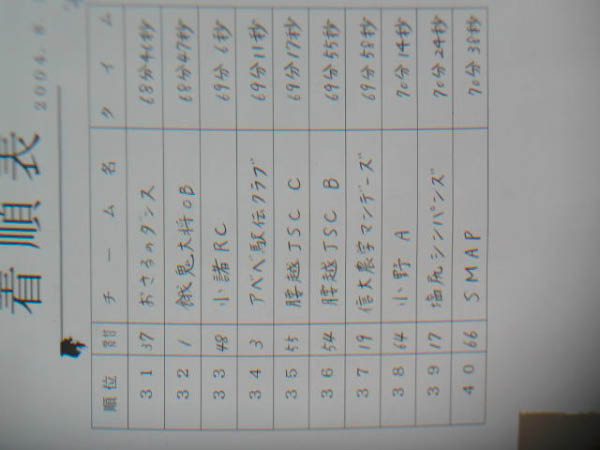 着順表
2004.8.
順位 チーム名 タイム
31 37 おさるのダンス 68分46秒
32 1 餓鬼大将OB 68分47秒
33 48 小諸RC 69分6秒
34 3 アベベ駅伝クラブ 69分11秒
35 55 腰越JSC C 69分17秒
36 54 腰越JSC B 69分55秒
37 19 信大農学マンデーズ 69分58秒
38 64 小野 A 70分14秒
39 17 塩尻シンパンズ 70分24秒
40 66 SMAP 70分38秒